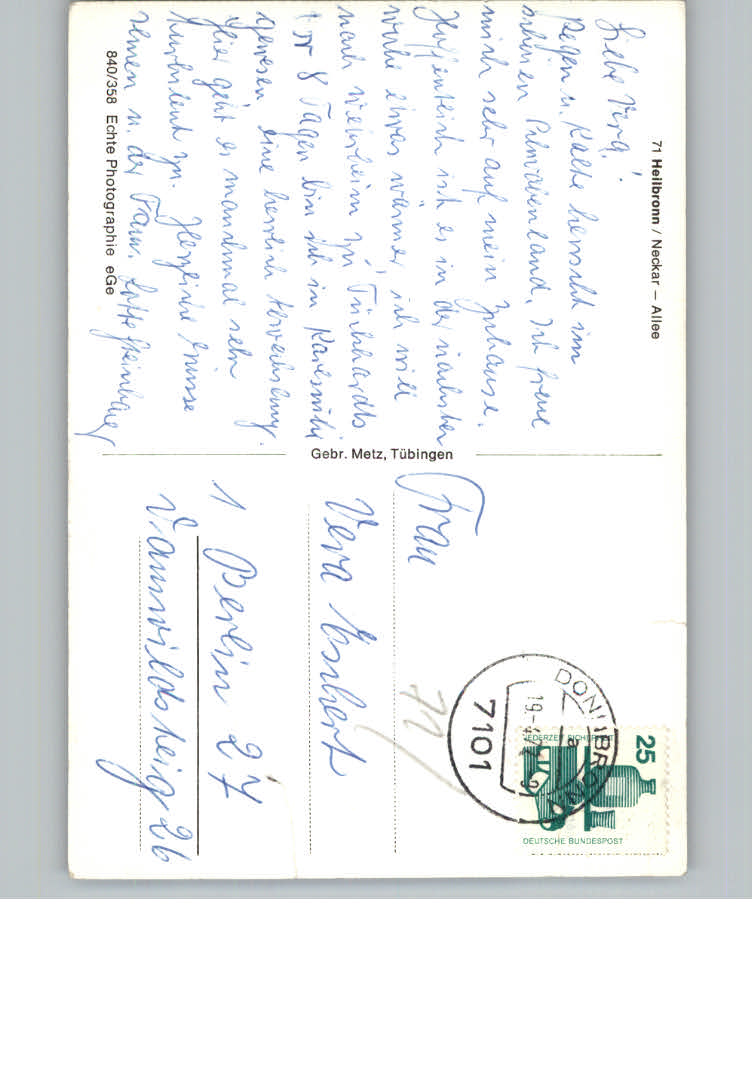 71 Heilbronn / Neckar – Allee
Liebe Vera!
Regen u. Kälte herrscht im
schönen Schwabenland. Ich freue
mich sehr auf mein Zuhause.
Hoffentlich ist es in der nächsten
Woche etwas wärmer, ich will
nach Weinheim zu
8 Tagen bin ich in Karlsruhe
gewesen eine herrliche Abwechslung.
Hier geht es manchmal sehr
zu. Herzliche Grüsse
u. der Fam. Lotte
840/358 Echte Photographie eGe
Gebr. Metz, Tübingen
Frau
Vera
1 Berlin 27
26
71
7101
19.-4.
25
JEDERZEIT SICHERHEIT
DEUTSCHE BUNDESPOST